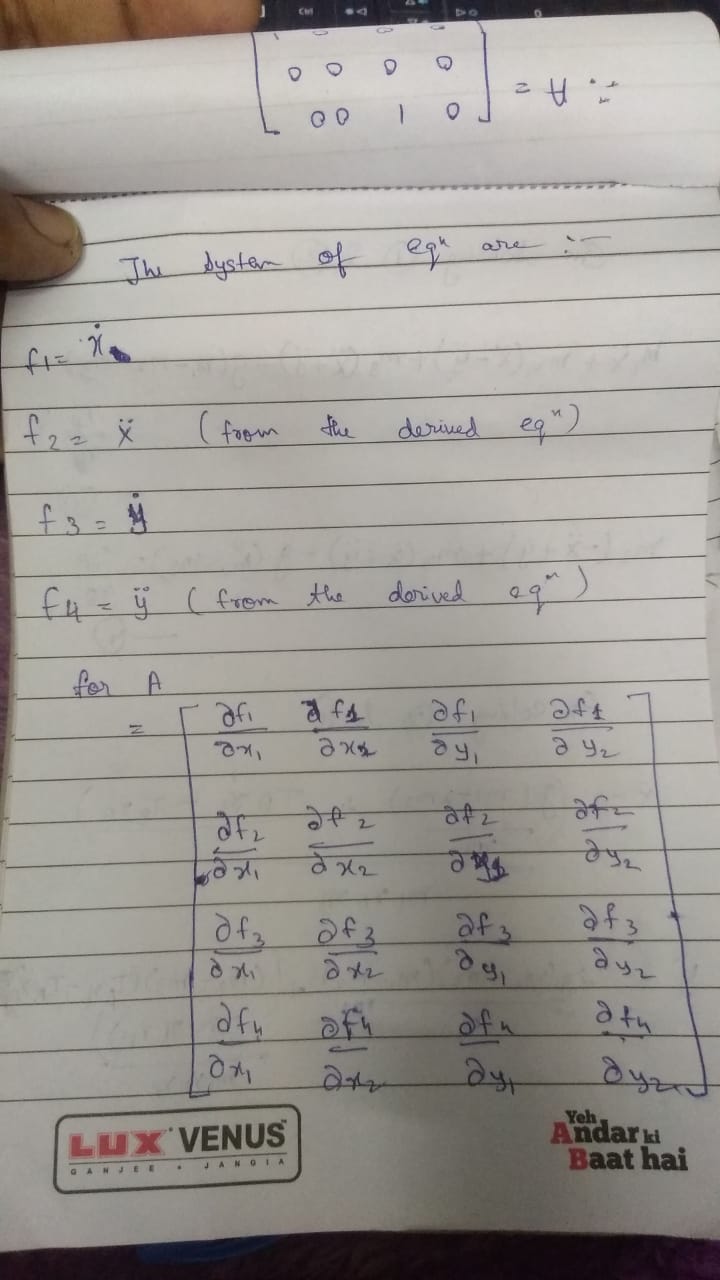 ∴ A = [
0 1 0 0
0 0 0 0
The system of eqⁿ are :-
f1 = ẋ
f2 = ẍ (from the derived eqⁿ)
f3 = ẏ
f4 = ÿ (from the derived eqⁿ)
for A
= [ ∂f1/∂x1 ∂f1/∂x2 ∂f1/∂y1 ∂f1/∂y2
∂f2/∂x1 ∂f2/∂x2 ∂f2/∂y1 ∂f2/∂y2
∂f3/∂x1 ∂f3/∂x2 ∂f3/∂y1 ∂f3/∂y2
∂f4/∂x1 ∂f4/∂x2 ∂f4/∂y1 ∂f4/∂y2 ]
LUX VENUS
GANJEE • JANGIA
Yeh
Andar ki
Baat hai